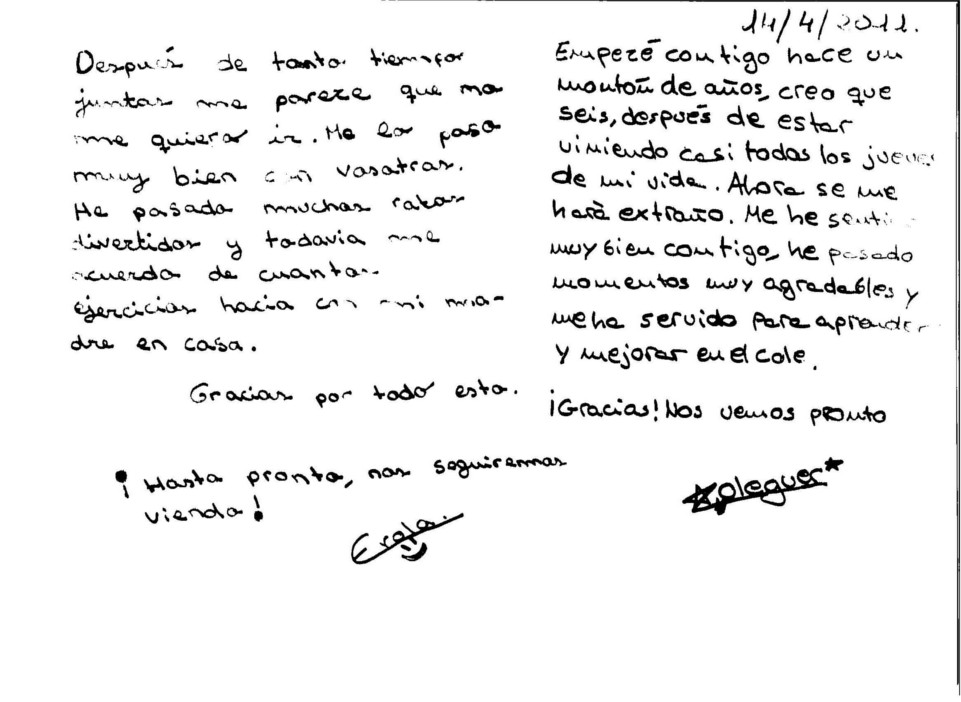 14/4/2011.
Después de tanto tiempo
juntas me pareze que no
me quiero ir. Me lo paso
muy bien con vosotras.
He pasado muchos ratos
divertidos y todavia me
acuerdo de cuantos
ejercicios hacia con mi ma-
dre en casa.
Gracias por todo esto.
¡Hasta pronto, nos seguiremos
viendo!
Empezé contigo hace un
montoñ de años, creo que
seis, después de estar
viniendo casi todos los jueves
de mi vida. Ahora se me
hará extraño. Me he senti
muy bien contigo, he pasado
momentos muy agradables y
me ha servido para aprender
y mejorar en el cole.
¡Gracias! Nos vemos pronto